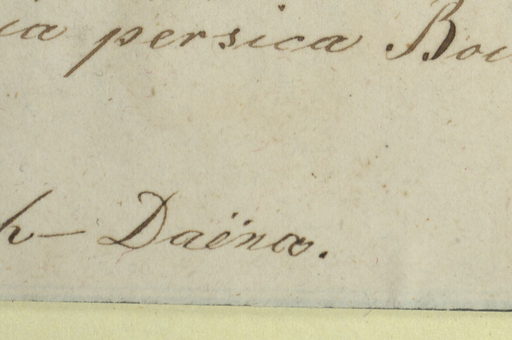 ia persica Boi
h— Daëna.